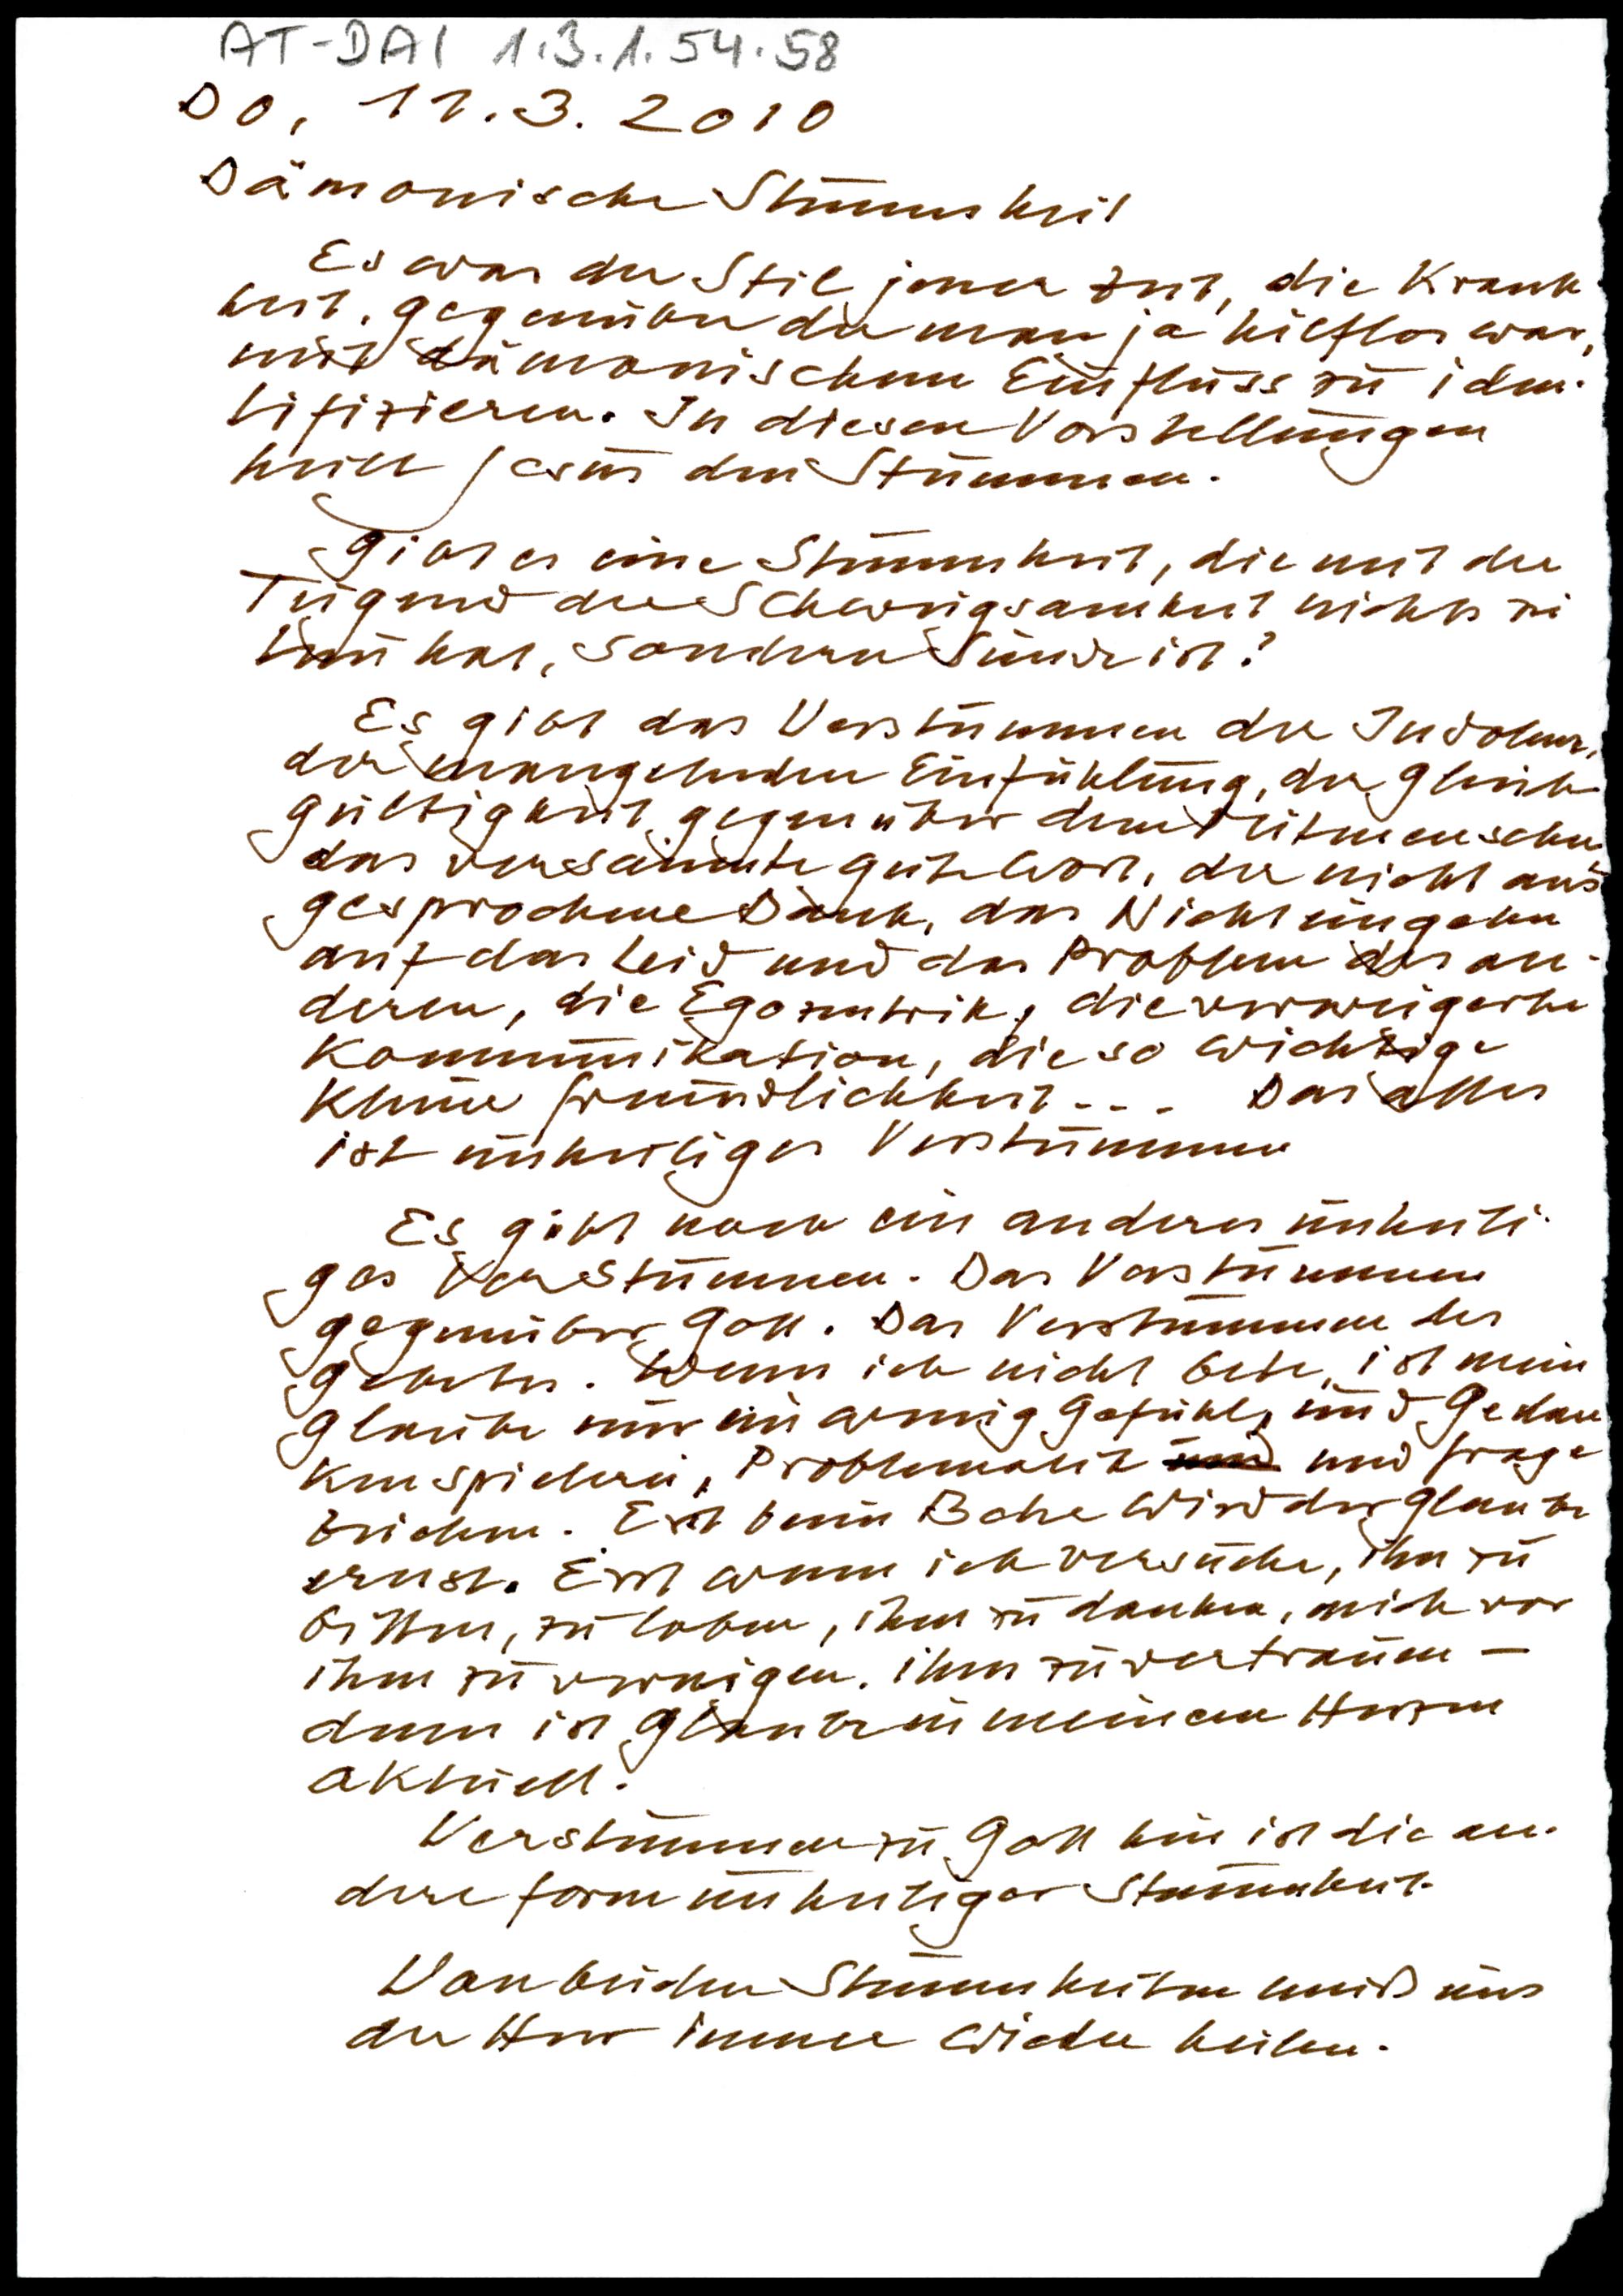 AT-DAI 1.3.1.54.58
Do, 11.3.2010
Dämonische Stummheit
Es war der Stil jener Zeit, die Krank
heit, gegenüber der man ja hilflos war,
mit dämonischem Einfluss zu iden-
tifizieren. In diesen Vorstellungen
heilt Jesus den Stummen.
Gibt es eine Stummheit, die mit der
Tugend der Schweigsamkeit nichts zu
tun hat, sondern Sünde ist?
Es gibt das Verstummen der Indolenz,
der mangelnden Einfühlung, der Gleich-
gültigkeit gegenüber dem Mitmenschen,
das versäumte gute Wort, der nicht aus
gesprochene Dank, das Nichteingehen
auf das Leid und das Problem des an-
deren, die Egozentrik, die verweigerte
Kommunikation, die so wichtige
kleine Freundlichkeit... Das alles
ist unheiliges Verstummen
Es gibt noch ein anderes unheili-
ges Verstummen. Das Verstummen
gegenüber Gott. Das Verstummen des
Gebetes. Wenn ich nicht bete, ist mein
Glaube nur ein wenig Gefühl, und Gedan
kenspielerei, Problematik und und Frage
zeichen. Erst beim Beten wird der Glaube
ernst. Erst wenn ich versuche, ihn zu
bitten, zu loben, ihm zu danken, mich vor
ihm zu verneigen, ihm zu vertrauen –
dann ist Glaube in meinem Herzen
aktuell.
Verstummen zu Gott hin ist die an-
dere Form unheiliger Stummheit.
Von beiden Stummheiten muß uns
der Herr immer wieder heilen.